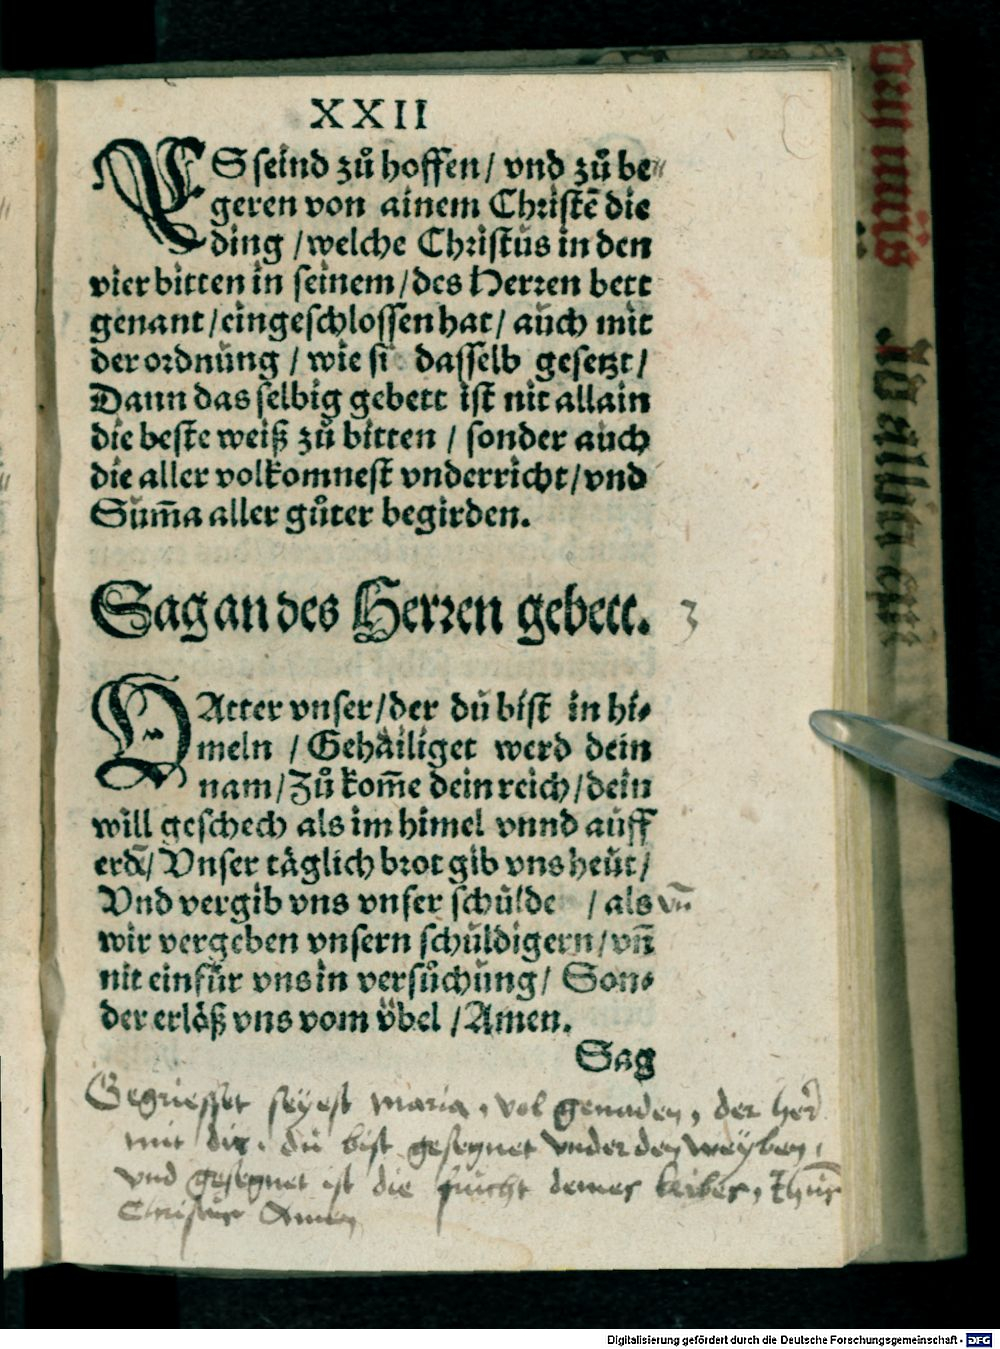 XXII
ES seind zů hoffen / vnd zů be⸗
geren von ainem Christē die
ding / welche Christus in den
vier bitten in seinem / des Herren bett
genant / eingeschlossen hat / auch mit
der ordnung / wie si dasselb gesetzt /
Dann das selbig gebett ist nit allain
die beste weiß zů bitten / sonder auch
die aller volkomnest vnderricht / vnd
Sum̄a aller gůter begirden.
Sag an des Herren gebett. 3
VAtter vnser / der du bist in hi⸗
meln / Gehailiget werd dein
nam / Zů kom̄e dein reich / dein
will geschech als im himel vnnd auff
erdē / Vnser täglich brot gib vns heut /
Vnd vergib vns vnser schulde / als vn̄
wir vergeben vnsern schuldigern / vn̄
nit einfür vns in versůchung / Son⸗
der erlöß vns vom übel / Amen.
Sag
Gegriesset seyest maria, vol genaden, der her
mit dir, du bist gesegnet vnder den weyben,
vnd gesegnet ist die frucht deines leibes, Jhus
Christus Amen
Digitalisierung gefördert durch die Deutsche Forschungsgemeinschaft - DFG